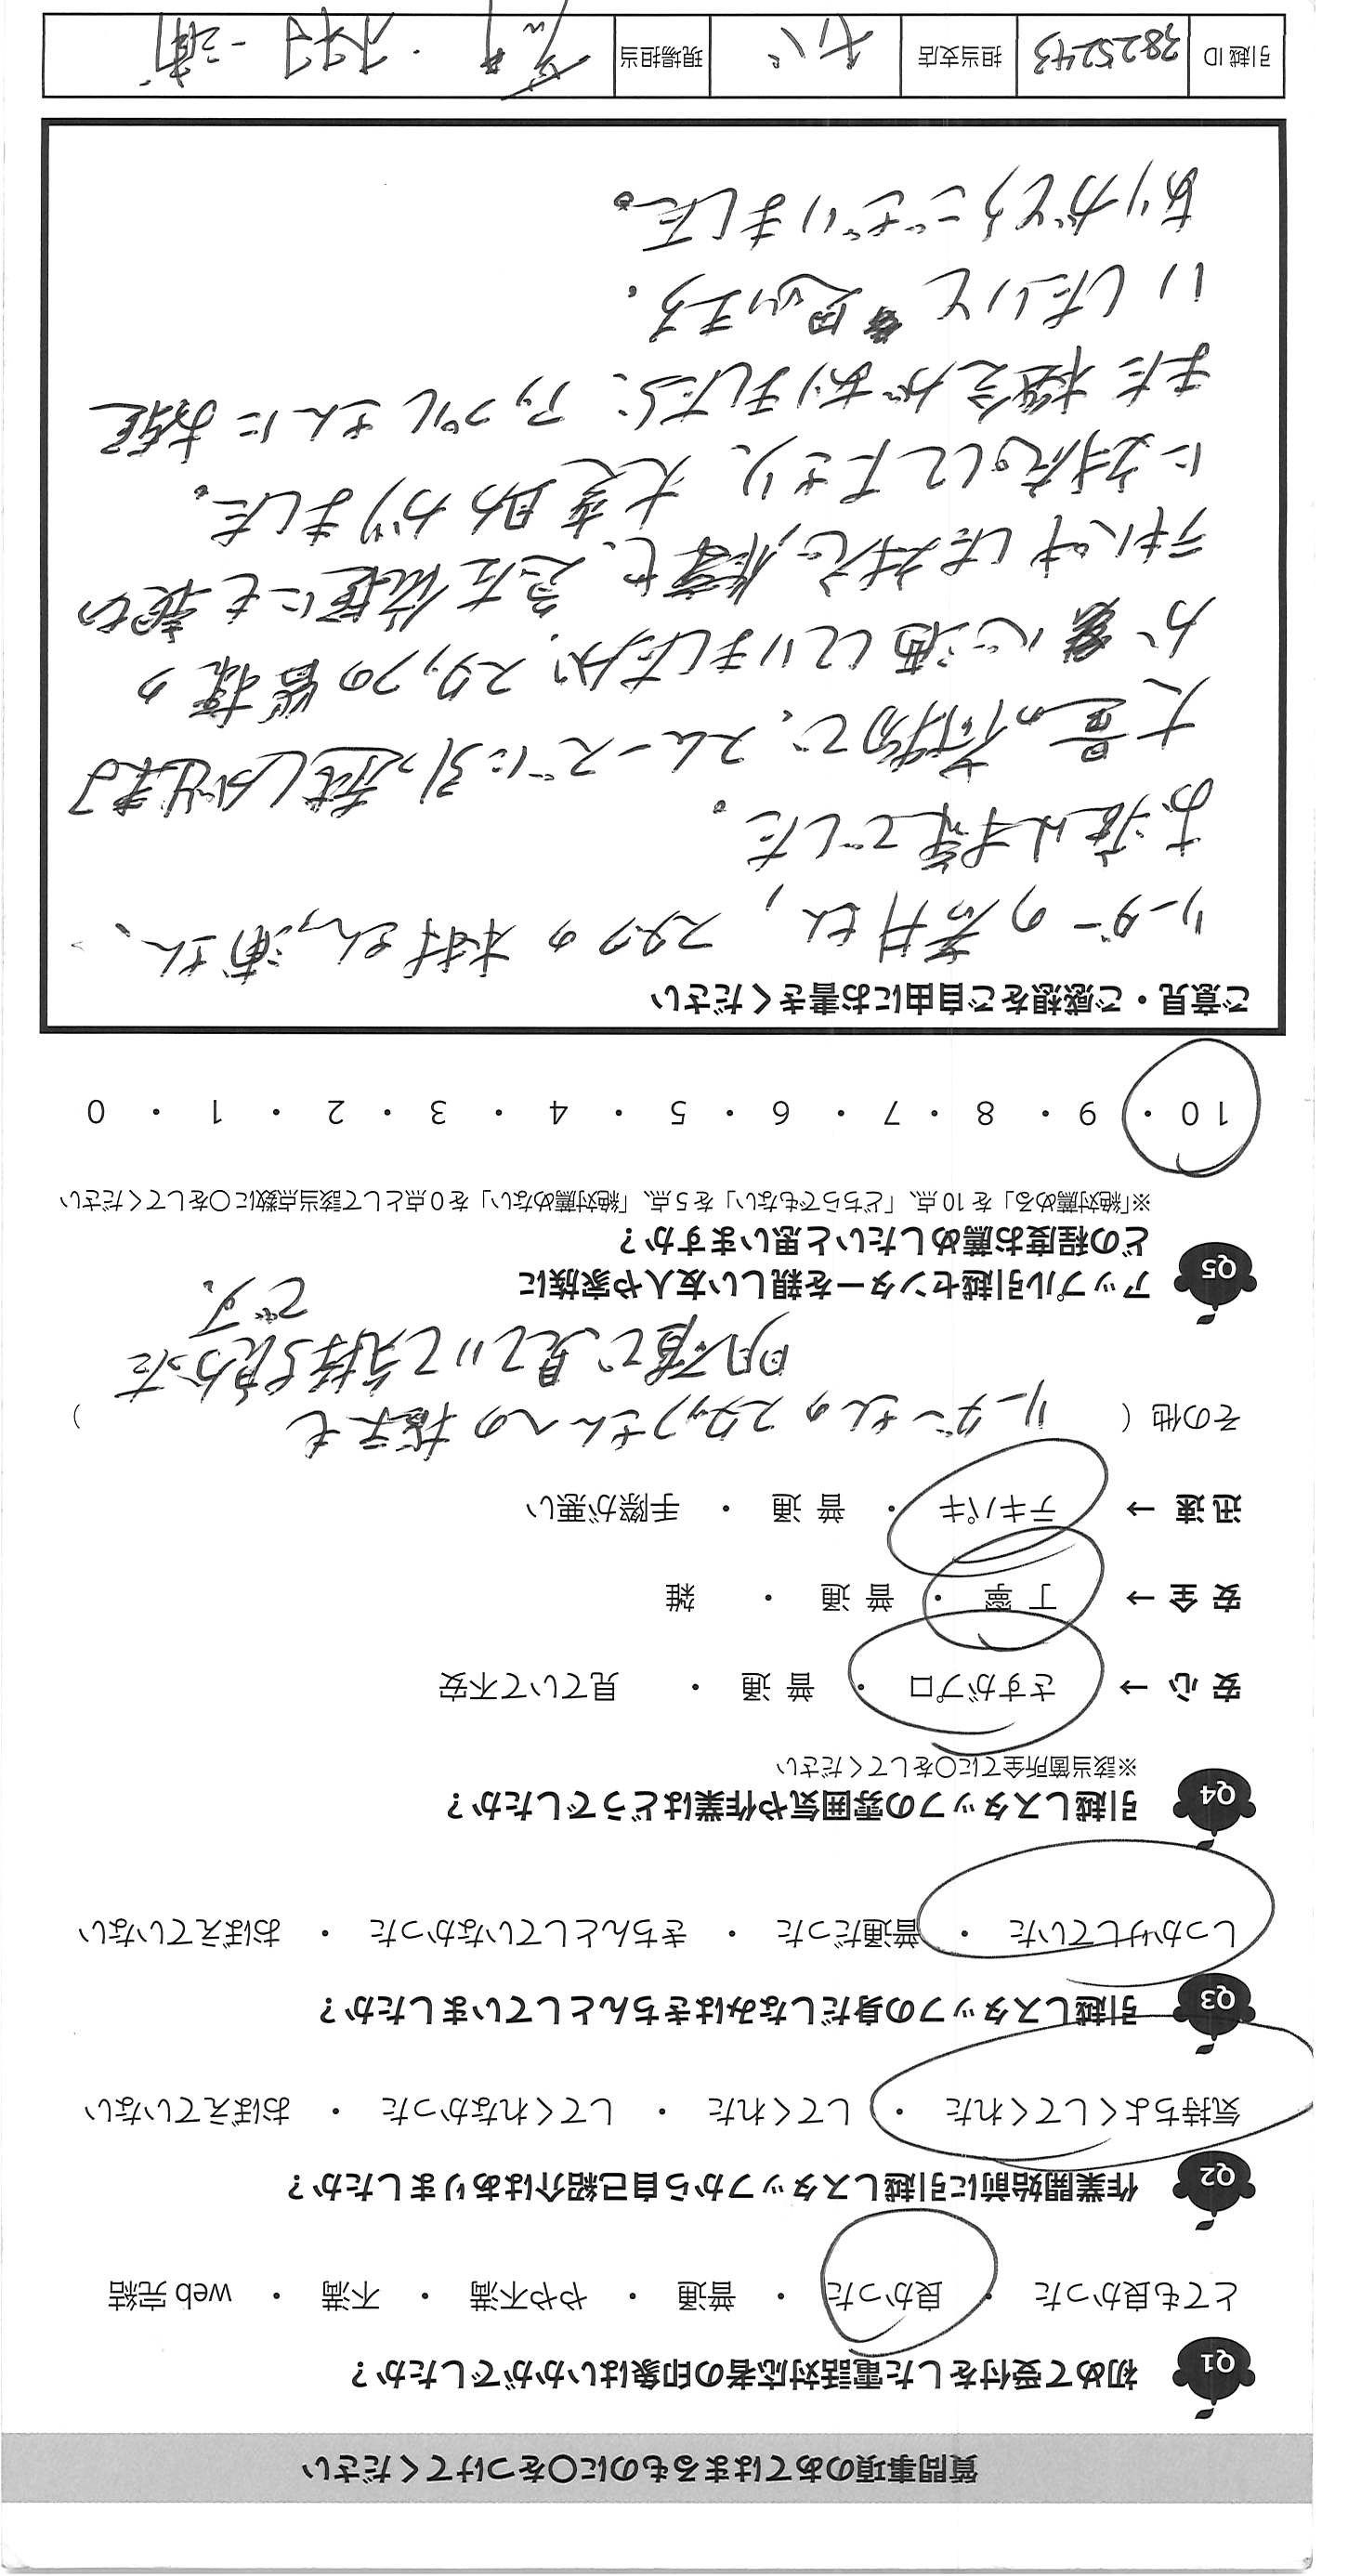 質問事項のあてはまるものに○をつけてください
Q1 初めて受付をした電話対応者の印象はいかがでしたか？
とても良かった ・ 良かった ・ 普通 ・ やや不満 ・ 不満 ・ web 完結
Q2 作業開始前に引越しスタッフから自己紹介はありましたか？
気持ちよくしてくれた ・ してくれた ・ してくれなかった ・ おぼえていない
Q3 引越しスタッフの身だしなみはきちんとしていましたか？
しっかりしていた ・ 普通だった ・ きちんとしていなかった ・ おぼえていない
Q4 引越しスタッフの雰囲気や作業はどうでしたか？
※該当箇所全てに○をしてください
安 心 → さすがプロ ・ 普 通 ・ 見ていて不安
安 全 → 丁 寧 ・ 普 通 ・ 雑
迅 速 → テキパキ ・ 普 通 ・ 手際が悪い
その他 ( リーダーさんのスタッフさんへの指示も )
明確で見ていて気持ち良かった
です。
Q5 アップル引越センターを親しい友人や家族に
どの程度お薦めしたいと思いますか？
※「絶対薦める」を 10 点、「どちらでもない」を 5 点、「絶対薦めない」を 0 点として該当点数に○をしてください
10 ・ 9 ・ 8 ・ 7 ・ 6 ・ 5 ・ 4 ・ 3 ・ 2 ・ 1 ・ 0
ご意見・ご感想をご自由にお書きください
リーダーの 井さん, スタッフの木村さん, 浦さん、
お疲れ様でした。
大量の荷物で、スムーズに引っ越しが出来る
か 心配していましたが、スタッフの皆様の
テキパキした対応, 作業で、急な依頼にも親切
に対応して下さり、大変助かりました。
また機会がありましたら、アップルさんにお願
いしたいと 思います。
ありがとうございました。
引越 ID 3825243 担当支店 現場担当 井・木村・浦